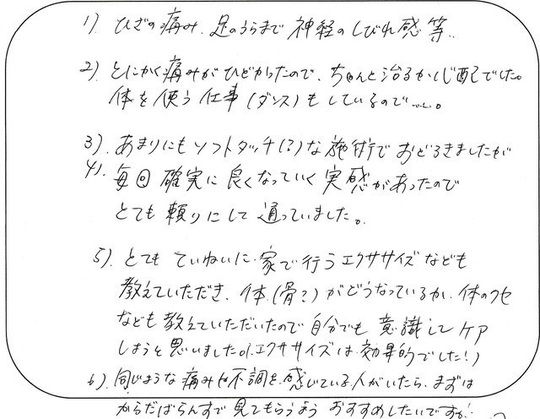 1) ひざの痛み、足のうらまで神経のしびれ感等..
2) とにかく痛みがひどかったので、ちゃんと治るか心配でした。
体を使う仕事(ダンス)もしているので……。
3) あまりにもソフトタッチ(!?)な施術でおどろきましたが
4) 毎回確実に良くなっていく実感があったので
とても頼りにして通っていました。
5) とてもていねいに、家で行うエクササイズなども
教えていただき、体(骨?)がどうなっているか、体のクセ
なども教えていただいたので自分でも意識してケア
しようと思いました。(エクササイズは効果的でした!)
6) 同じような痛みや不調を感じている人がいたら、まずは
からだばらんすで見てもらうようおすすめしたいですね!